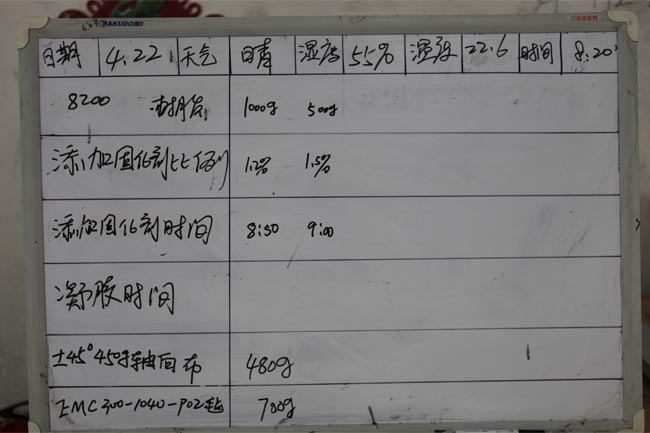 YAKUDO
日期 4.22 天气 日晴 湿度 55% 温度 22.6 时间 8:20
8200 树脂 1000g 500g
添加固化剂比例 1.2% 1.5%
添加固化剂时间 8:50 9:00
凝胶时间
±45° 450 轴向布 480g
EMC300-1040-P02毡 700g